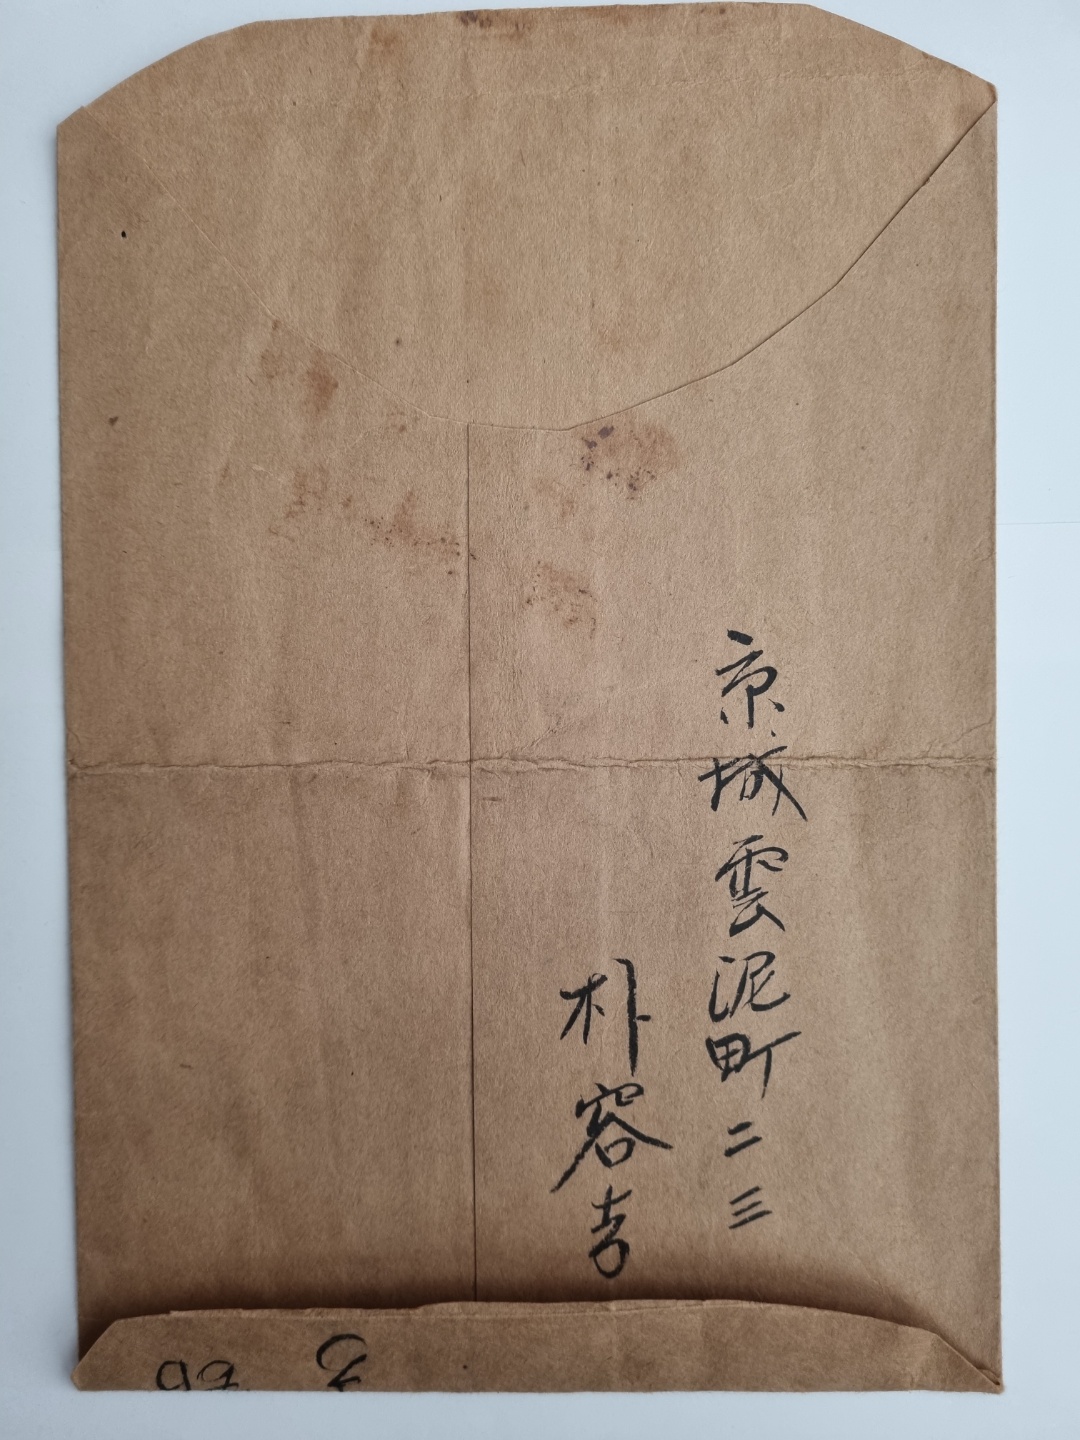 京城雲泥町二三
朴容吉